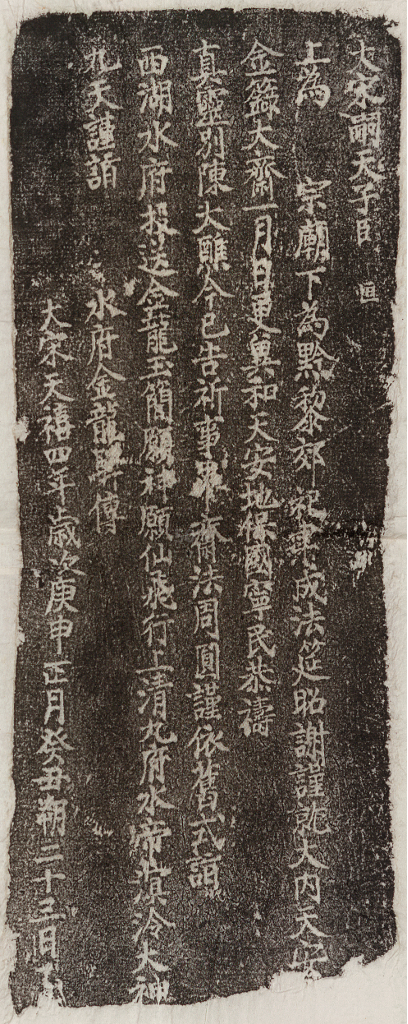 大宋嗣天子臣 恒
上為 宗廟下為黔黎郊祀事成法筵昭謝謹就大内天安
金籙大齋一月日更異和天安地保國寧民恭禱
真靈別陳大醮今已告祈事畢齋法周圓謹依舊式詣
西湖水府投送金龍玉簡願神願仙飛行上清九府水帝溟泠大神
九天謹詣
水府金龍驛傳
大宋天禧四年歲次庚申正月癸丑朔二十三日